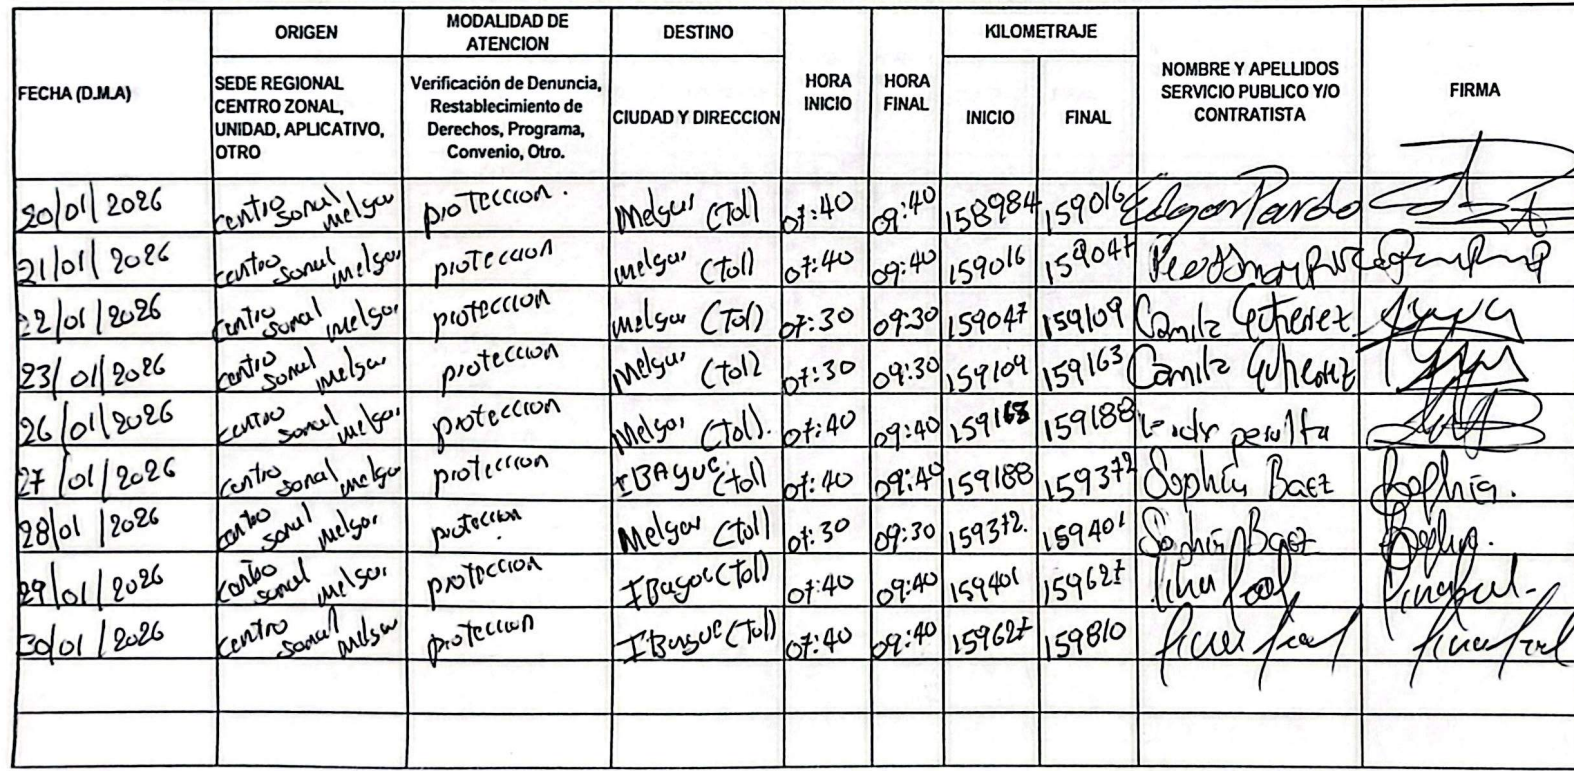 ORIGEN MODALIDAD DE ATENCION DESTINO KILOMETRAJE
FECHA (D.M.A) SEDE REGIONAL CENTRO ZONAL, UNIDAD, APLICATIVO, OTRO Verificación de Denuncia, Restablecimiento de Derechos, Programa, Convenio, Otro. CIUDAD Y DIRECCION HORA INICIO HORA FINAL INICIO FINAL NOMBRE Y APELLIDOS SERVICIO PUBLICO Y/O CONTRATISTA FIRMA
20/01/2026 centro sonal melgar proteccion. Melgar (Tol) 07:40 09:40 158984 159016 Edgar Pardo
21/01/2026 centro sonal melgar proteccion melgar (Tol) 07:40 09:40 159016 159047
22/01/2026 centro sonal melgar proteccion melgar (Tol) 07:30 09:30 159047 159109 Camila Gutierrez
23/01/2026 centro sonal melgar proteccion melgar (Tol) 07:30 09:30 159109 159163 Camila Gutierrez
26/01/2026 centro sonal melgar proteccion Melgar (Tol). 07:40 09:40 159168 159188
27/01/2026 centro sonal melgar proteccion IBAGUE (Tol) 07:40 09:40 159188 159372 Sophia Baez Sophia.
28/01/2026 centro sonal melgar proteccion Melgar (Tol) 07:30 09:30 159372. 159401 Sophia Baez
29/01/2026 centro sonal melgar proteccion IBague (Tol) 07:40 09:40 159401 159627
30/01/2026 centro sonal melgar proteccion IBague (Tol) 07:40 09:40 159627 159810